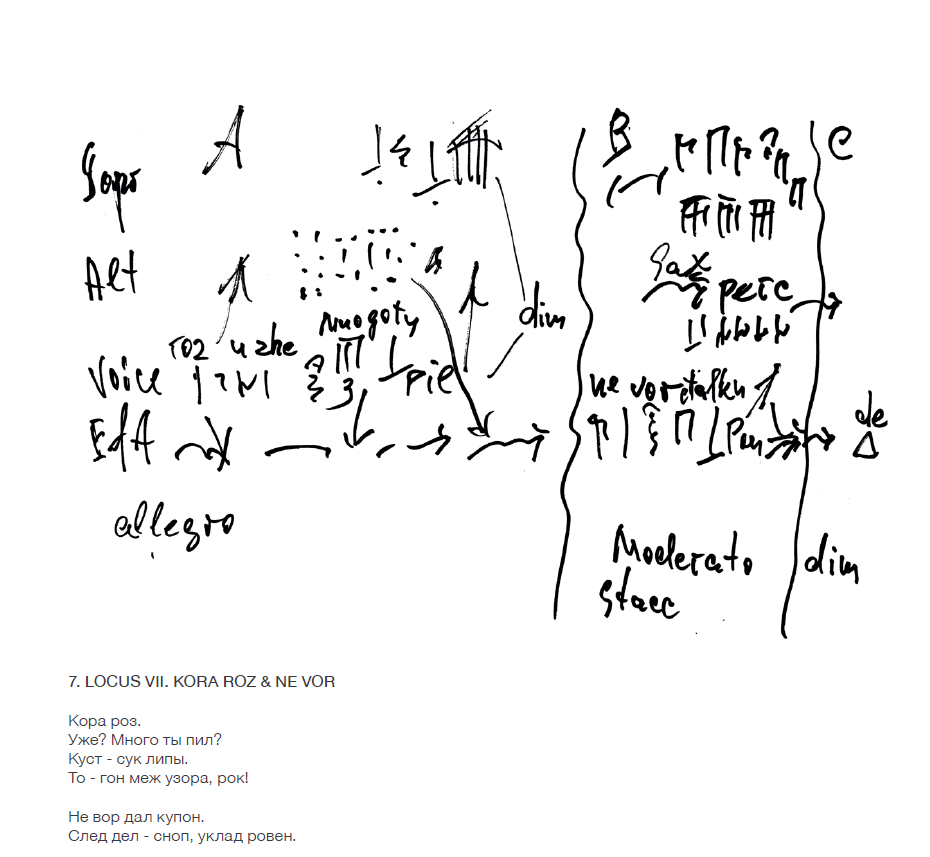 A B C
Sopr
Alt
Sax
perc
mnogoty
dim
roz uzhe
Voice pil
ne vor
de
EdA
allegro
Moderato dim
stacc
7. LOCUS VII. KORA ROZ & NE VOR
Кора роз.
Уже? Много ты пил?
Куст - сук липы.
То - гон меж узора, рок!
Не вор дал купон.
След дел - сноп, уклад ровен.